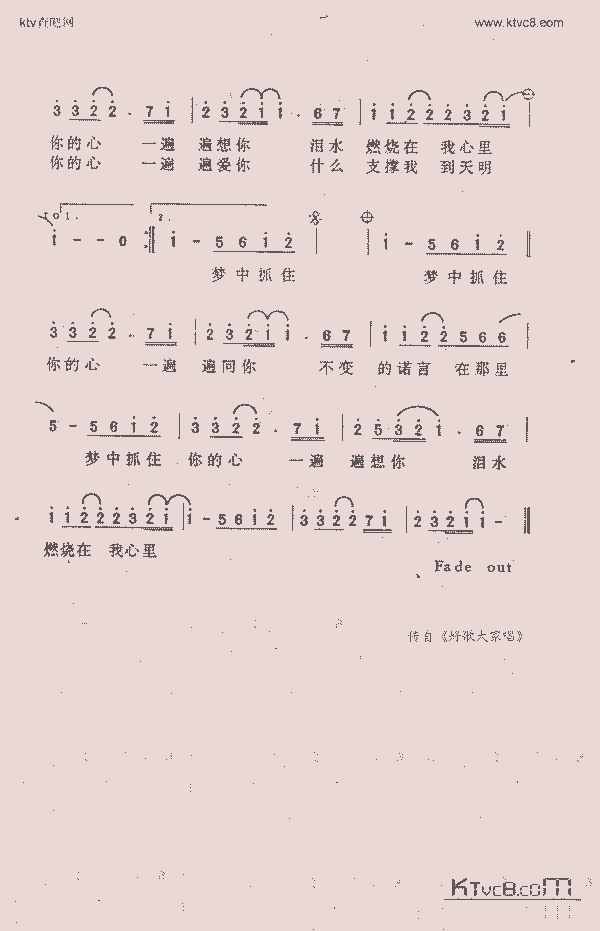 ktv在吧网 www.ktvc8.com
3 3 2 2 . 7 1 | 2 3 2 1 1 . 6 7 | 1 1 2 2 2 3 2 1 |
你的心 一遍 遍想你 泪水 燃烧在 我心里
你的心 一遍 遍爱你 什么 支撑我 到天明
1. 2.
1 - - 0 :‖ 1 - 5 6 1 2 | | 1 - 5 6 1 2 ‖
梦中抓住 梦中抓住
3 3 2 2 . 7 1 | 2 3 2 1 1 . 6 7 | 1 1 2 2 5 6 6 |
你的心 一遍 遍问你 不变 的诺言 在那里
5 - 5 6 1 2 | 3 3 2 2 . 7 1 | 2 5 3 2 1 . 6 7 |
梦中抓住 你的心 一遍 遍想你 泪水
1 1 2 2 2 3 2 1 | 1 - 5 6 1 2 | 3 3 2 2 7 1 | 2 3 2 1 1 - ‖
燃烧在 我心里
Fade out
传自《好歌大家唱》
KTvc8.com